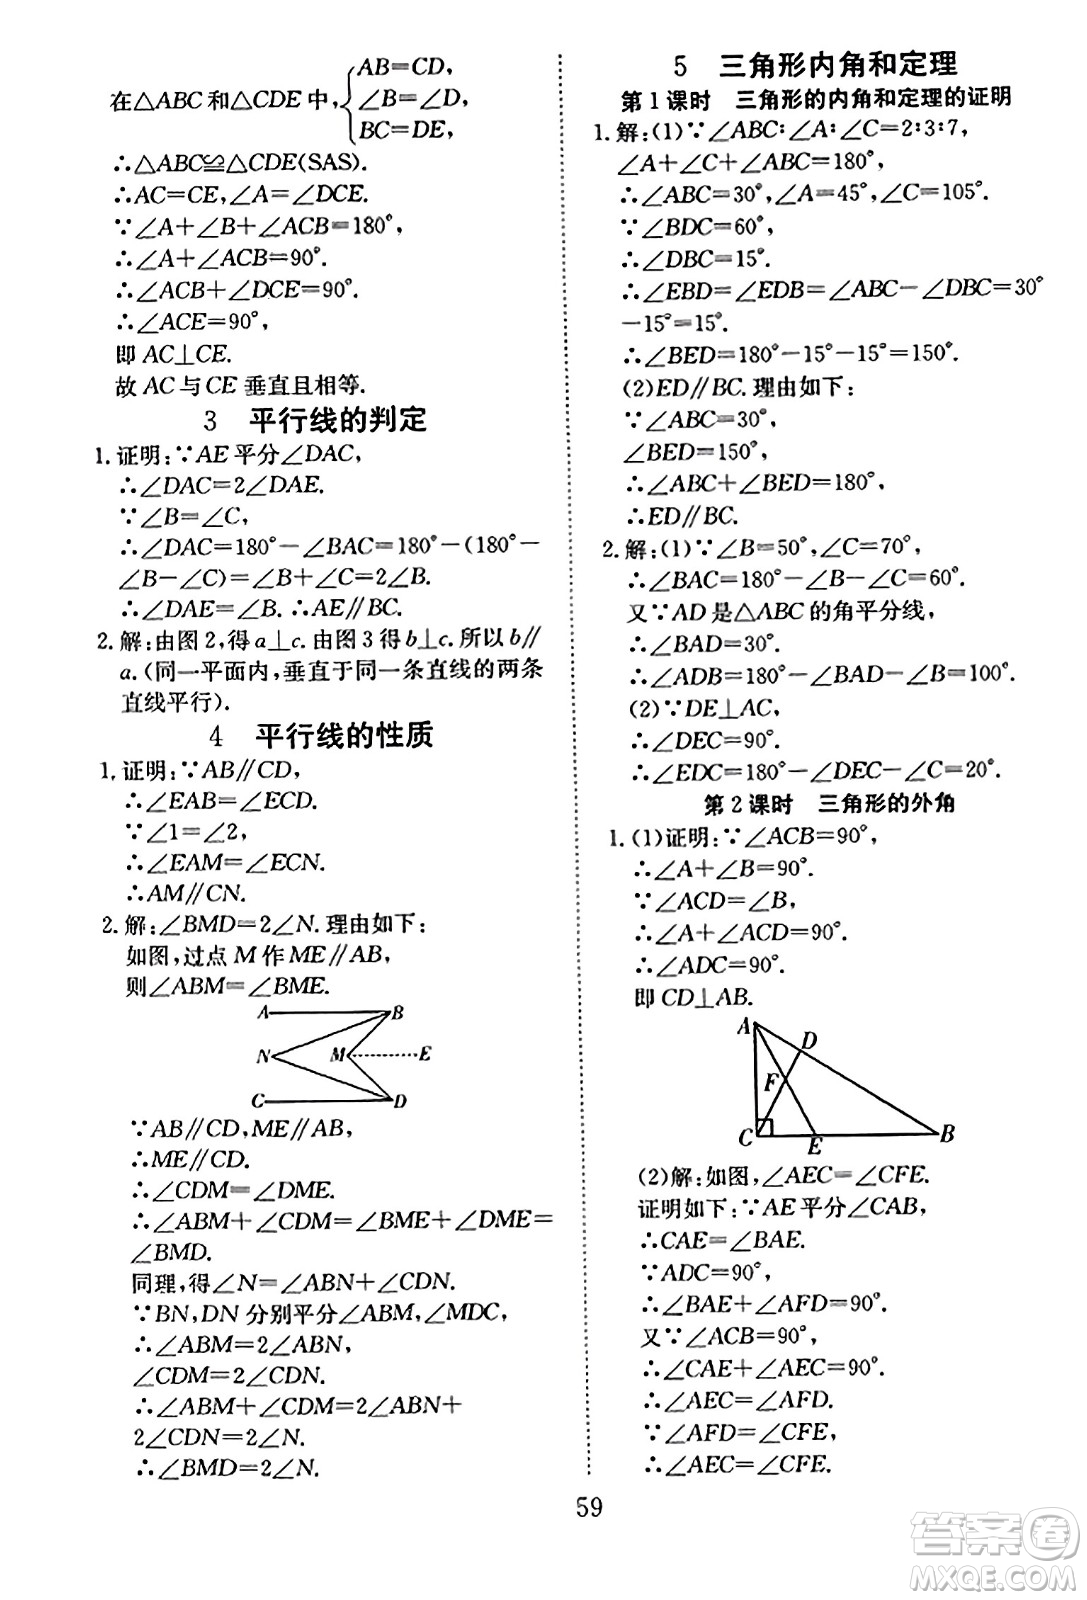 在△ABC和△CDE中,
AB=CD,
∠B=∠D,
BC=DE,
∴△ABC≌△CDE(SAS).
∴AC=CE,∠A=∠DCE.
∵∠A+∠B+∠ACB=180°,
∴∠A+∠ACB=90°.
∴∠ACB+∠DCE=90°.
∴∠ACE=90°,
即AC⊥CE.
故AC与CE垂直且相等.
3 平行线的判定
1.证明:∵AE平分∠DAC,
∴∠DAC=2∠DAE.
∵∠B=∠C,
∴∠DAC=180°-∠BAC=180°-(180°-
∠B-∠C)=∠B+∠C=2∠B.
∴∠DAE=∠B.∴AE∥BC.
2.解:由图2,得a⊥c.由图3得b⊥c.所以b∥
a.(同一平面内,垂直于同一条直线的两条
直线平行).
4 平行线的性质
1.证明:∵AB∥CD,
∴∠EAB=∠ECD.
∵∠1=∠2,
∴∠EAM=∠ECN.
∴AM∥CN.
2.解:∠BMD=2∠N.理由如下:
如图,过点M作ME∥AB,
则∠ABM=∠BME.
A B
N M E
C D
∵AB∥CD,ME∥AB,
∴ME∥CD.
∴∠CDM=∠DME.
∴∠ABM+∠CDM=∠BME+∠DME=
∠BMD.
同理,得∠N=∠ABN+∠CDN.
∵BN,DN分别平分∠ABM,∠MDC,
∴∠ABM=2∠ABN,
∠CDM=2∠CDN.
∴∠ABM+∠CDM=2∠ABN+
2∠CDN=2∠N.
∴∠BMD=2∠N.
5 三角形内角和定理
第1课时 三角形的内角和定理的证明
1.解:(1)∵∠ABC∶∠A∶∠C=2∶3∶7,
∠A+∠C+∠ABC=180°,
∴∠ABC=30°,∠A=45°,∠C=105°.
∵∠BDC=60°,
∴∠DBC=15°.
∴∠EBD=∠EDB=∠ABC-∠DBC=30°
-15°=15°.
∴∠BED=180°-15°-15°=150°.
(2)ED∥BC.理由如下:
∵∠ABC=30°,
∠BED=150°,
∴∠ABC+∠BED=180°,
∴ED∥BC.
2.解:(1)∵∠B=50°,∠C=70°,
∴∠BAC=180°-∠B-∠C=60°.
又∵AD是△ABC的角平分线,
∴∠BAD=30°.
∴∠ADB=180°-∠BAD-∠B=100°.
(2)∵DE⊥AC,
∴∠DEC=90°.
∴∠EDC=180°-∠DEC-∠C=20°.
第2课时 三角形的外角
1.(1)证明:∵∠ACB=90°,
∴∠A+∠B=90°.
∵∠ACD=∠B,
∴∠A+∠ACD=90°.
∴∠ADC=90°.
即CD⊥AB.
A D
F
C E B
(2)解:如图,∠AEC=∠CFE.
证明如下:∵AE平分∠CAB,
∴CAE=∠BAE.
∵ADC=90°,
∴∠BAE+∠AFD=90°.
又∵∠ACB=90°,
∴∠CAE+∠AEC=90°.
∴∠AEC=∠AFD.
∵∠AFD=∠CFE,
∴∠AEC=∠CFE.
59
答案卷
MXQE.COM